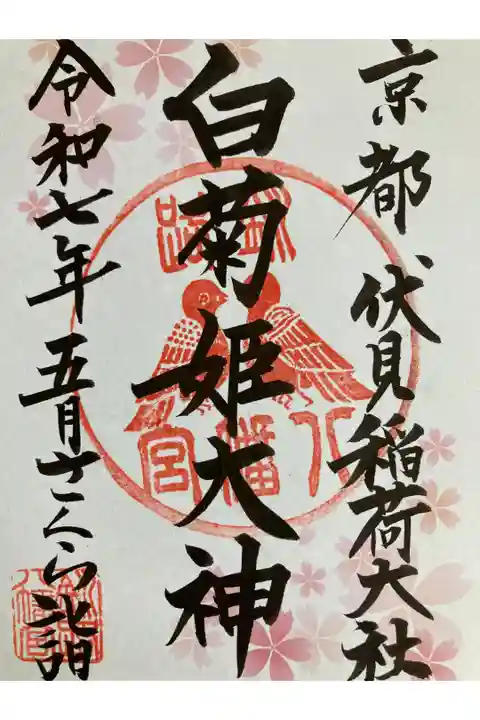 京都 伏見稲荷大社
白菊姫大神
釧路
八幡宮
令和七年五月
詣